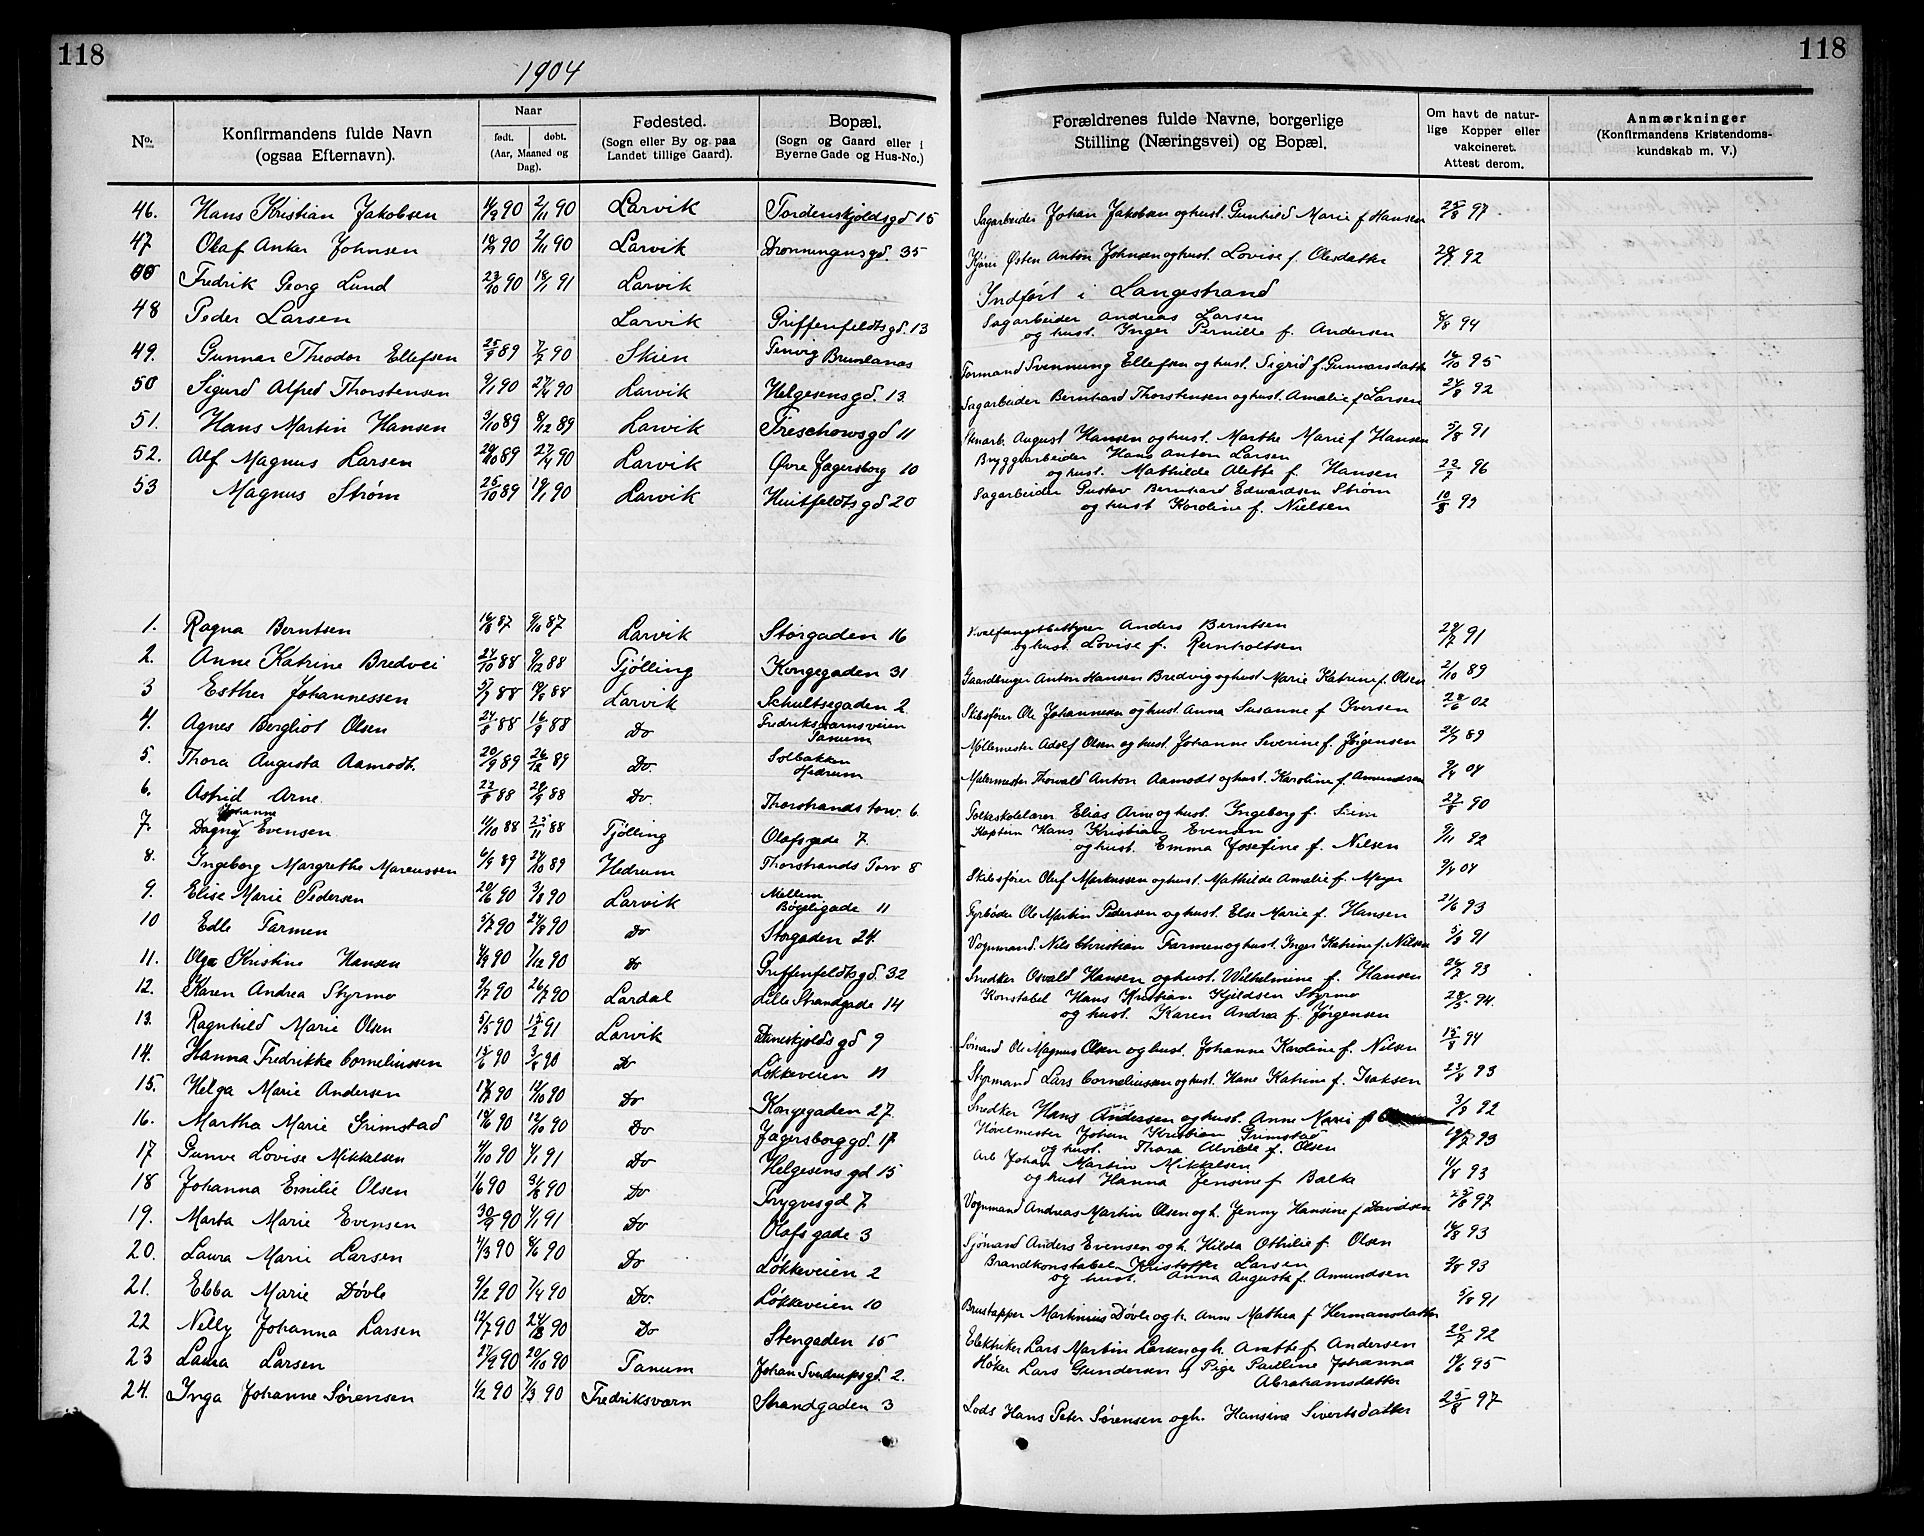 118
1904
118
No. Konfirmandens fulde Navn (ogsaa Efternavn). Naar født. døbt. (Aar, Maaned og Dag). Fødested. (Sogn eller By og paa Landet tillige Gaard). Bopæl. (Sogn og Gaard eller i Byerne Gade og Hus-No.) Forældrenes fulde Navne, borgerlige Stilling (Næringsvei) og Bopæl. Om havt de naturlige Kopper eller vakcineret. Attest derom. Anmærkninger (Konfirmandens Kristendomskundskab m. V.)
46. Hans Kristian Jakobsen 2/11 90 Larvik Tordenskjoldsgd 15 Sagarbeider Johan Jakobsen og hust. Gunhild Marie f Hansen 25/8 97.
47 Olaf Anker Johnsen 2/11 90 Larvik Dronningensgd. 35 Kjører Østen Anton Johnsen og hust. Lovise f. Olesdatter 92
Fredrik Georg Lund 23/10 90 18/1 91 Larvik Indført i Langestrand
48 Peder Larsen Larvik Griffenfeldtsgd. 13 Sagarbeider Andreas Larsen
og hust. Inger Pernille f. Andersen 8/8 94
49. Gunnar Theodor Ellefsen 25/9 89 7/2 90 Skien Tenvig Brunlanæs Formand Svennung Ellefsen og hust. Sigrid f. Gunnarsdatter 16/10 95
50 Sigurd Alfred Thorstensen 9/1 90 27/4 90 Larvik Helgesensgd. 13. Sagarbeider Bernhard Thorstensen og hust. Amalie f Larsen 24/8 92
51. Hans Martin Hansen 3/10 89 8/12 89 Larvik Treschowsgd 11 Stenarb. August Hansen og hust. Marthe Marie f Hansen 5/8 91
52. Alf Magnus Larsen 20/10 89 27/4 90 Larvik Øvre Jagersborg 10 Bryggearbeider Hans Anton Larsen
og hust. Mathilde Alette f. Hansen 22/7 96
53 Magnus Strøm 25/10 89 19/1 90 Larvik Huitfeldtsgd 20 Sagarbeider Gustav Bernhard Edwardsen Strøm
og hust Karoline f. Nielsen 10/8 92
1. Ragna Berntsen 16/8 87 9/10 87 Larvik Storgaden 16 Hvalfangstbestyrer Anders Berntsen
og hust. Lovise f. Reinholtsen 91
2. Anne Katrine Bredvei 24/10 88 9/12 88 Tjølling Kongegaden 31 Gaardbruger Anton Hansen Bredvig og hust Marie Katrine f. Olsen 2/10 89
3 Esther Johannessen 88 88 Larvik Schultzegaden 2 Skibsfører Ole Johannesen og hust. Anna Susanne f Iversen 28/6 02
4. Agnes Bergliot Olsen 24/8 88 16/9 88 Do Fredriksværnsveien Tanum Møllemester Adolf Olsen og hust. Johanne Severine f. Jørgensen 89
5. Thora Augusta Aamodt. 20/9 89 26/12 89 Do. Solbakken Hedrum Malermester Thorvald Anton Aamodt og hust. Karoline f. Amundsen 9/4 04
6. Astrid Arne 22/8 88 88 Do. Thorstrands torv. 6 Folkeskolelærer Elias Arne og hust. Ingeborg f. Siem 27/8 90
7. Dagny Johanna Evensen 11/10 88 25/11 88 Tjølling Olafsgade 7 Kaptein Hans Kristian Evensen
og hust. Emma Josefine f. Nilsen 9/11 92
8. Ingeborg Margrethe Marcussen 6/9 89 24/10 89 Hedrum Thorstrands Torv 8 Skibsfører Oluf Markussen og hust. Mathilde Amalie f. Meyer 9/4 04
9. Elise Marie Pedersen 20/6 90 3/8 90 Larvik Mellem Bøgeligade 11 Fyrbøder Ole Martin Pedersen og hust. Else Marie f. Hansen 21/6 93
10 Edle Farmen 5/7 90 24/8 90 Do Storgaden 24. Vognmand. Nils Christian Farmen og hust. Inger Katrine f. Nilsen 5/8 91
11. Olga Kristine Hansen 90 7/12 90 Do Griffenfeldtsgd. 32 Snedker Osvald Hansen og hust. Wilhelmine f. Hansen 26/7 93
12. Karen Andrea Styrmo 9/2 90 26/7 90 Lardal Lille Strandgade 14 Konstabel Hans Kristian Kjeldsen Styrmo
og hust. Karen Andrea f. Jørgensen 94.
13. Ragnhild Marie Olsen 5/5 90 15/2 91 Larvik Daneskjoldsgd 9 Sømand Ole Magnus Olsen og hust. Johanne Karoline f. Nilsen 15/8 94
14. Hanna Fredrikke Corneliussen 90 90 Do Løkkeveien 11 Styrmand Lars Corneliussen og hust. Hane Katrine f. Isaksen 23/8 93
15. Helga Marie Andersen 90 90 Do Kongegaden 27. Snedker Hans Andersen og hust. Anne Marie f 3/8 92
16. Martha Marie Grimstad 90 12/10 90 Do Jagersborggd. 17 Høvelmester Johan Kristian Grimstad
og hust. Thora Alvilde f. Olsen 19/7 93
17 Gunve Lovise Mikkelsen 4/10 90 4/1 91 Do Helgesens gd 15 Arb Johan Martin Mikkelsen
og hust Hanna Jensine f Balke 93
18 Johanna Emilie Olsen 1/6 90 31/8 90 Do Trygvesgd 7 Vognmand Andreas Martin Olsen og h. Jenny Hansine f Davidsen 97
19. Marta Marie Evensen 30/9 90 4/1 91 Do Olafs gade 3 Sjømand Anders Evensen og h. Hilda Othilie f. Olsen 93
20. Laura Marie Larsen 4/3 90 8/6 90 Do Løkkeveien 2 Brandkonstabel Kristoffer Larsen
og hust. Anna Auguste f. Amundsen 93
21. Ebba Marie Døvle 9/2 90 7/4 90 Do. Løkkeveien 10 Brustapper Martinius Døvle og h. Anne Mathea f Hermansdatter 5/8 91
22 Nelly Johanna Larsen 12/7 90 24/8 90 Do Stengaden 15 Elektriker Lars Martin Larsen og h. Anette f. Andersen 20/7 92
23 Laura Larsen 90 20/10 90 Tanum Johan Sverdrupsgd. 2. Høker Lars Gundersen og Pige Pauline Johanna
Abrahamsdatter 95
24. Inga Johanne Sørensen 1/2 90 7/3 90 Fredriksværn Strandgaden 3 Lods Hans Peter Sørensen og h. Hansine Sivertsdatter 25/8 97